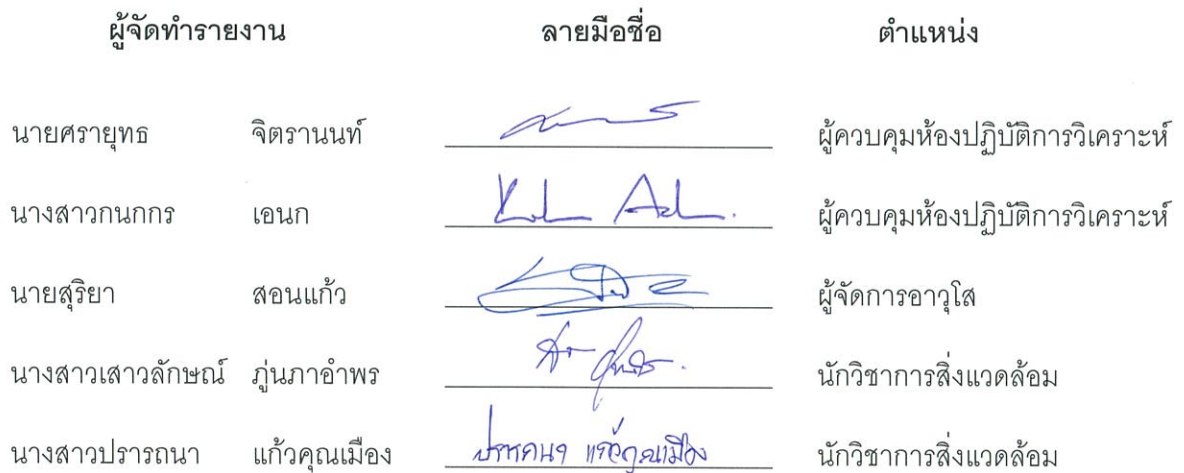 ผู้จัดทำรายงาน ลายมือชื่อ ตำแหน่ง
นายศรายุทธ จิตรานนท์ ผู้ควบคุมห้องปฏิบัติการวิเคราะห์
นางสาวกนกกร เอนก ผู้ควบคุมห้องปฏิบัติการวิเคราะห์
นายสุริยา สอนแก้ว ผู้จัดการอาวุโส
นางสาวเสาวลักษณ์ ภู่นภาอำพร นักวิชาการสิ่งแวดล้อม
นางสาวปรารถนา แก้วคุณเมือง ปรารถนา แก้วคุณเมือง นักวิชาการสิ่งแวดล้อม